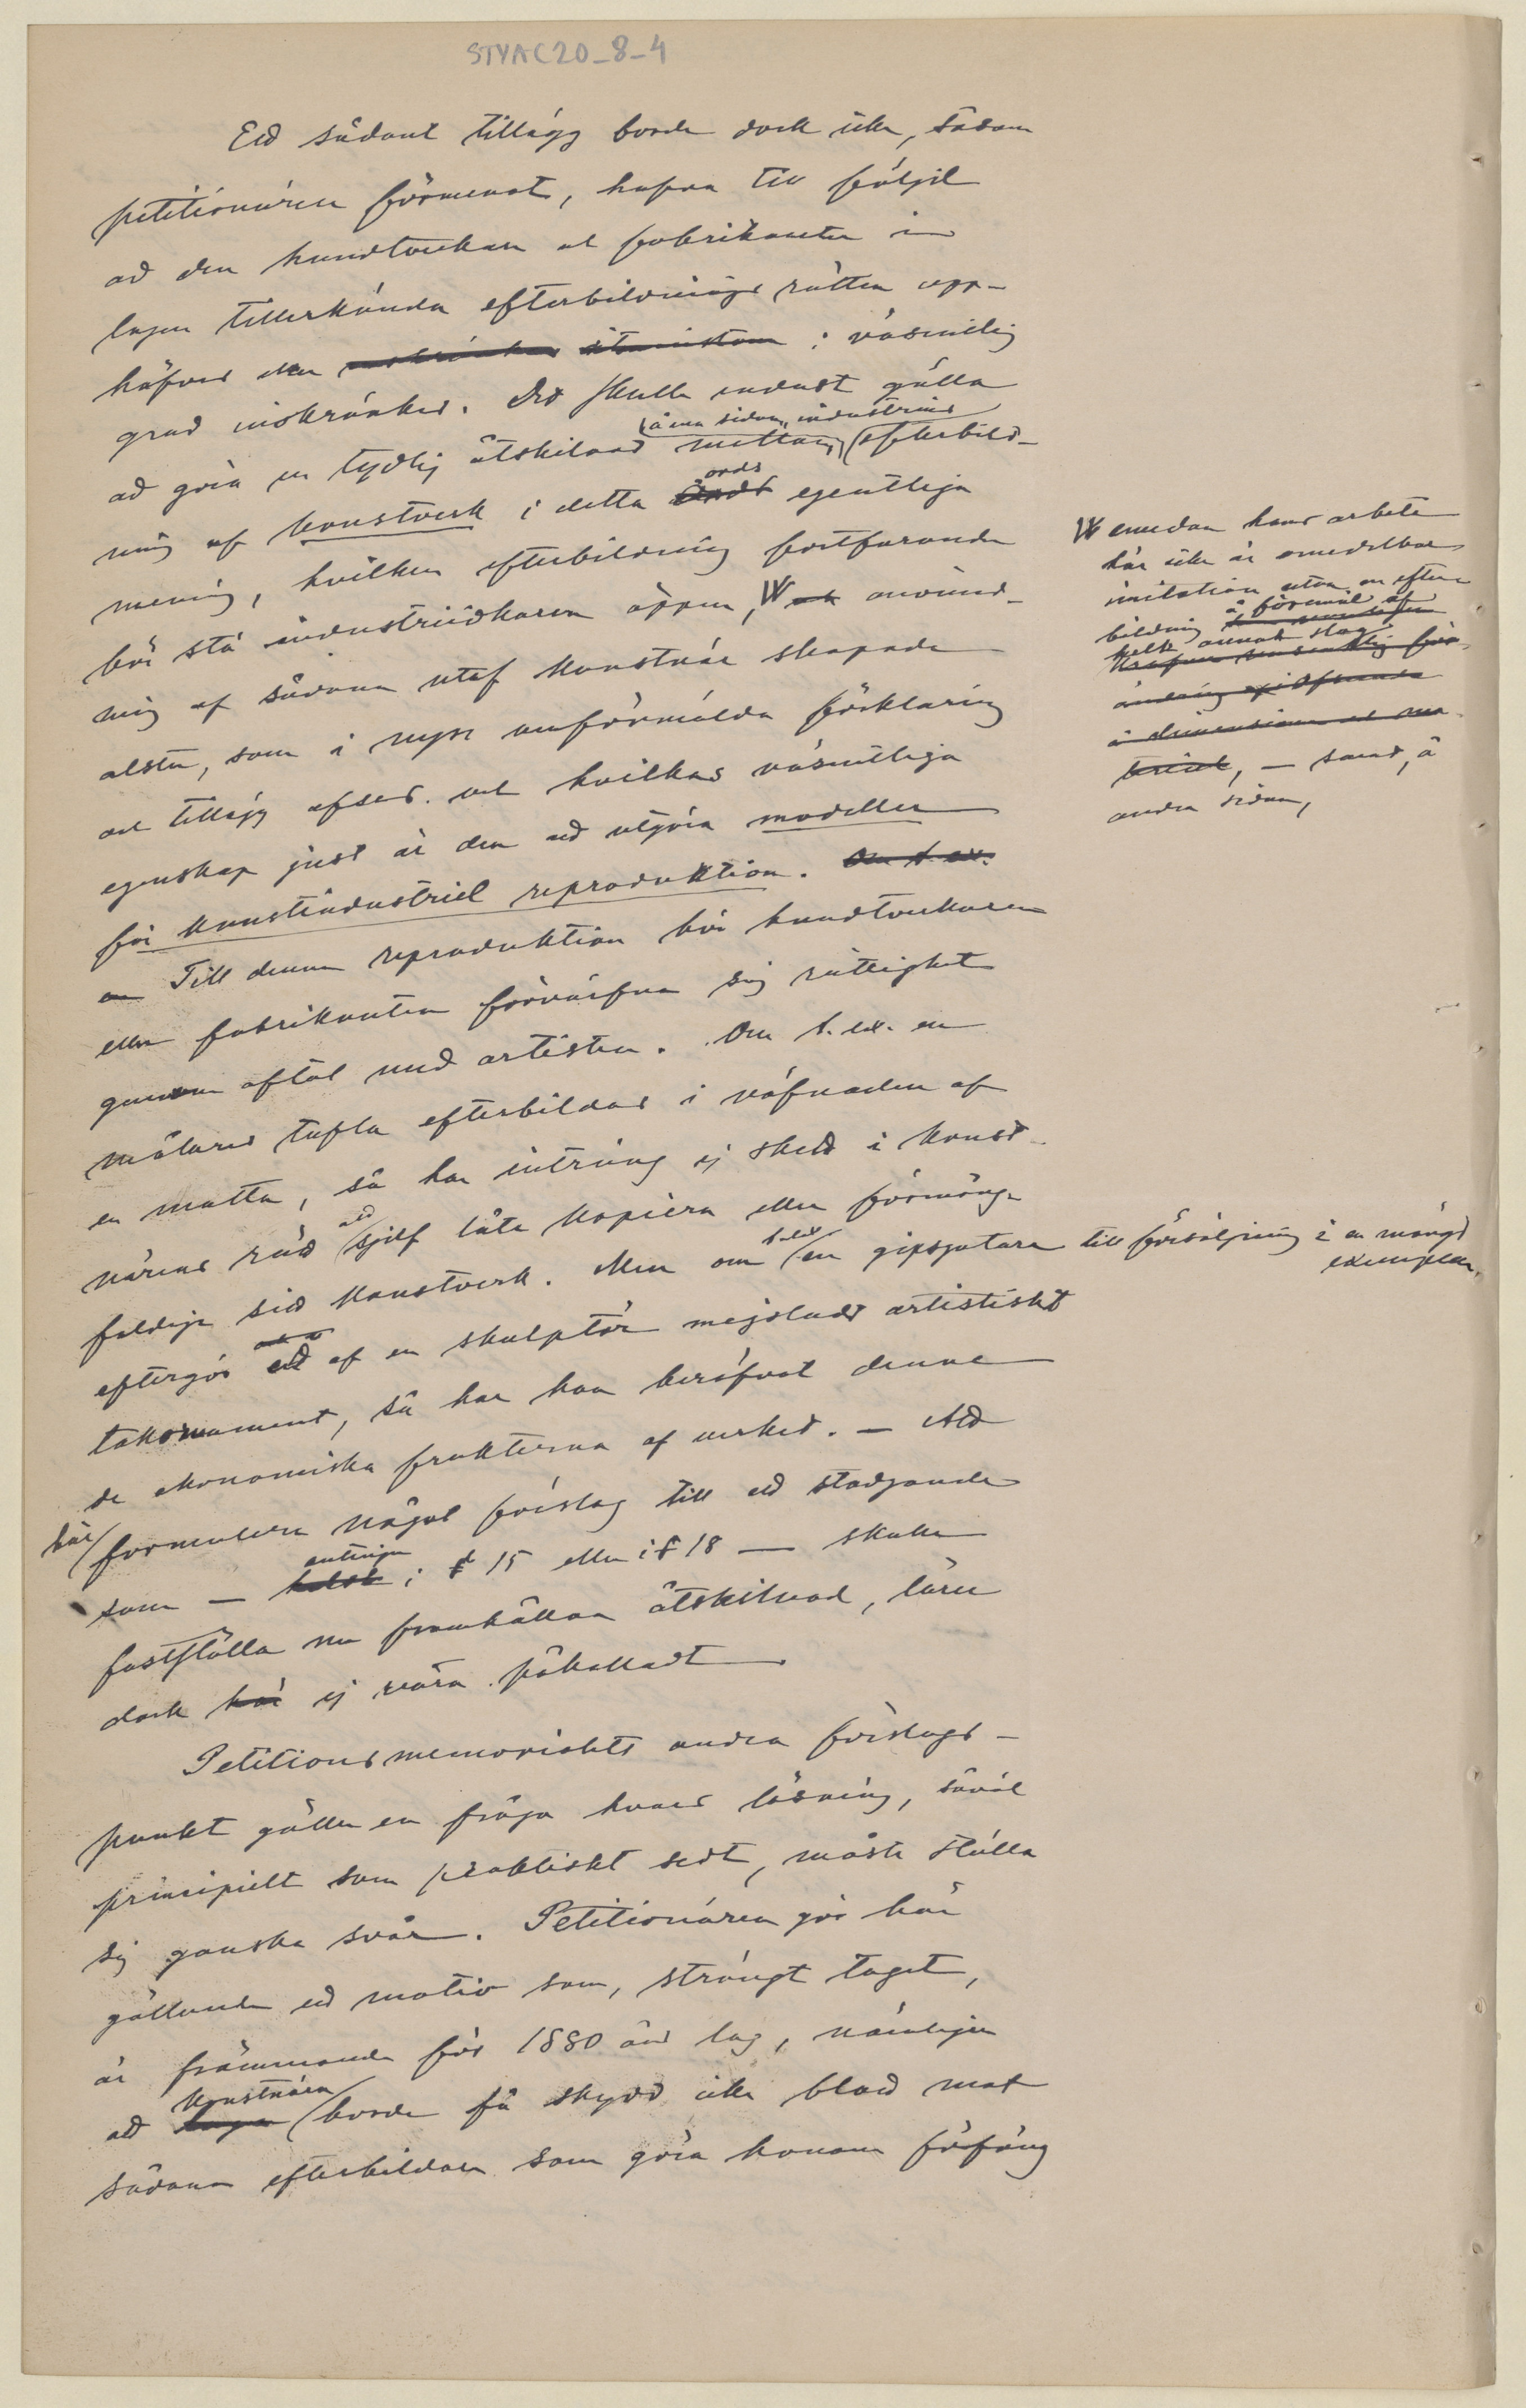 STYAC20_8_4
Ett sådant tillägg borde dock icke, såsom
petitionären förmenat, hafva till följd
att den handtverkare och fabrikanter i
lagen tillerkända efterbildnings rätten upp-
häfves eller i väsentlig
grad inskränkes. Det skulle endast gälla
å ena sidan, industriens
att göra en tydlig åtskilnad mellan, efterbild-
ords
ning af konstverk i detta egentliga
mening, hvilken efterbildning fortfarande
bör stå industriidkaren öppen, använd-
ning af sådana utaf konstnär skapade
alster, som i nyss anförmälda förklaring
och tillägg afses och hvilkas väsentliga
egenskap just är den att utgöra modeller
för konstindustriel reproduktion. Om t. ex.
Till denna reproduktion bör handtverkaren
eller fabrikanten förvärfva sig rättighet
genom aftal med artisten. Om t. ex. en
målares tafla efterbildas i väfnaden af
en matta, så har intrång ej skett i konst-
att
närens rätt sjelf låta kopiera eller förmång-
t. ex.
faldiga sitt konstverk. Men om en gipsgjutare till försäljning i en mängd
exemplar
eftergör ett af en skulptör mejsladt artistiskt
takornament, så har han beröfvat denne
de ekonomiska frukterna af verket. — Att
här formulera något förslag till ett stadgande
antingen
som — i § 15 eller i § 18 — skulle
fastställa nu framhållna åtskilnad, lärer
dock här ej vara påkalladt.
Petitionsmemorialets andra förslags-
punkt gäller en fråga hvars lösning, såväl
principielt som praktiskt sedt, måste ställa
sig ganska svår. Petitionären gör här
gällande ett motiv som, strängt taget,
är främmande för 1880 års lag, nämligen
konstnären
att lagen borde få skydd icke blott mot
sådana efterbildare som göra honom förfång
emedan hans arbete
här icke är omedelbar
imitation utan en efter-
bildning
å föremål af
helt annat slag
å dimensioner och ma-
teriel, — samt, å
andra sidan,